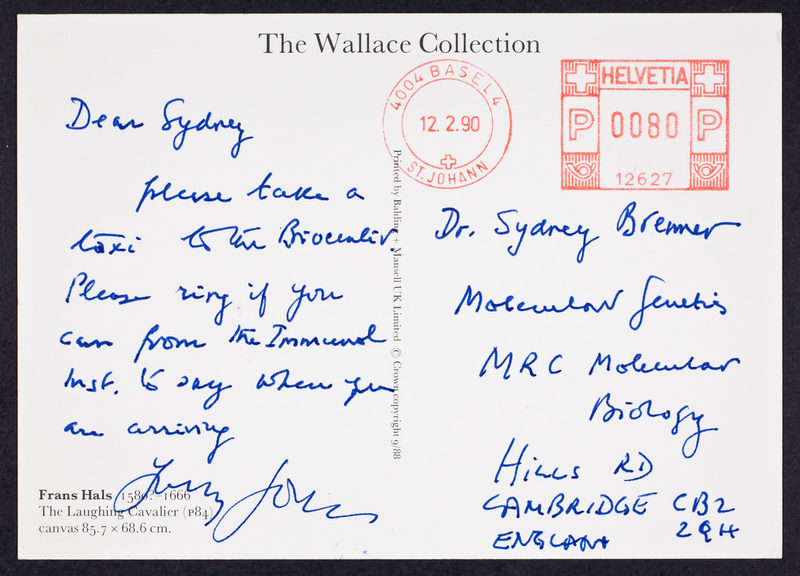 The Wallace Collection
4004 BASEL 4
12.2.90
ST. JOHANN
HELVETIA
P 0080 P
12627
Dear Sydney
please take a
taxi to the Biocenter.
Please ring if you
can from the Immunol
Inst. to say when you
are arriving
Frans Hals 1580?–1666
The Laughing Cavalier (P84)
canvas 85.7 × 68.6 cm.
Printed by Balding + Mansell UK Limited © Crown copyright 9/88
Dr. Sydney Brenner
Molecular Genetics
MRC Molecular
Biology
HILLS RD
CAMBRIDGE CB2
2QH
ENGLAND